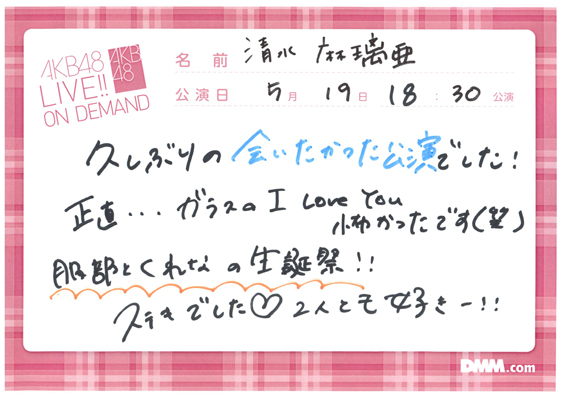 AKB48
LIVE!!
ON DEMAND
AKB
48
名前 清水 麻璃亜
公演日 5月 19日 18:30公演
久しぶりの会いたかった公演でした!
正直...ガラスの I Love You
怖かったです(笑)
服部とくれなの生誕祭!!
ステキでした♡2人とも好きー!!
DMM.com